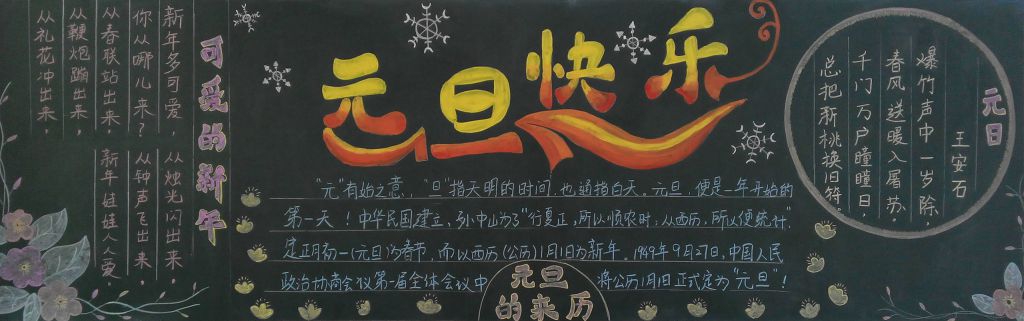 元旦快乐
可爱的新年
新年多可爱，
你从哪儿来？
从春联站出来，
从鞭炮蹦出来，
从礼花冲出来，
从烛光闪出来，
从钟声飞出来，
新年娃娃人人爱。
"元"有始之意，"旦"指天明的时间，也通指白天。元旦，便是一年开始的
第一天！中华民国建立，孙中山为了"行夏正，所以顺农时；从西历，所以便统计"，
定正月初一(元旦)为春节，而以西历(公历)1月1日为新年。1949年9月27日，中国人民
政治协商会议第一届全体会议中 将公历1月1日正式定为"元旦"！
元旦
的来历
元日
王安石
爆竹声中一岁除，
春风送暖入屠苏。
千门万户曈曈日，
总把新桃换旧符。